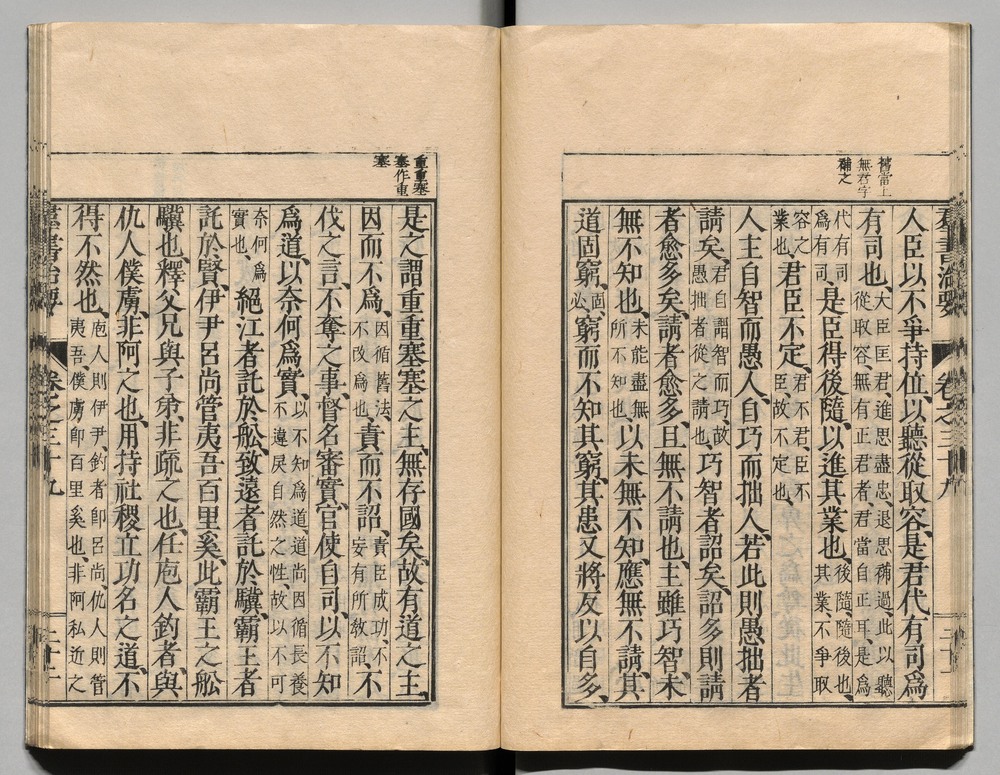 舊當上
無君字
補之
羣書治要 卷之三十九
人臣以不爭持位、以聽從取容、是君代有司爲
有司也、
大臣匡君、進思盡忠、退思補過、此以聽
從取容、無有正君者、君當自正耳、是爲
代有司
爲有司、
是臣得後隨、以進其業也、
後隨、隨後也、
其業、不爭取
容之
業也、
君臣不定、
君不君、臣不
臣、故不定也、
人主自智而愚人、自巧而拙人、若此則愚拙者
請矣、
君自謂智而巧、故
愚拙者從之請也、
巧智者詔矣、詔多則請
者愈多矣、請者愈多、且無不請也、主雖巧智、未
無不知也、
未能盡無
所不知也、
以未無不知、應無不請、其
道固窮、
固、
必、
窮而不知其窮、其患又將反以自多、
重重塞
塞作重
塞
是之謂重重塞塞之主、無存國矣、故有道之主、
因而不爲、
因循舊法、
不改爲也、
責而不詔、
責臣成功、不
妄有所教詔、
不
伐之言、不奪之事、督名審實、官使自司、以不知
爲道、以奈何爲實、
以不知爲道、道尚因循長養
不違戾自然之性、故以不可
奈何爲
實也、
絕江者託於舩、致遠者託於驥、霸王者
託於賢、伊尹呂尚管夷吾百里奚、此霸王之舩
驥也、釋父兄與子弟、非疏之也、任庖人釣者、與
仇人僕虜、非阿之也、用持社稷立功名之道、不
得不然也、
庖人則伊尹、釣者卽呂尚、仇人則管
夷吾、僕虜卽百里奚也、非阿私近之
羣書治要 卷之三十九 二十二